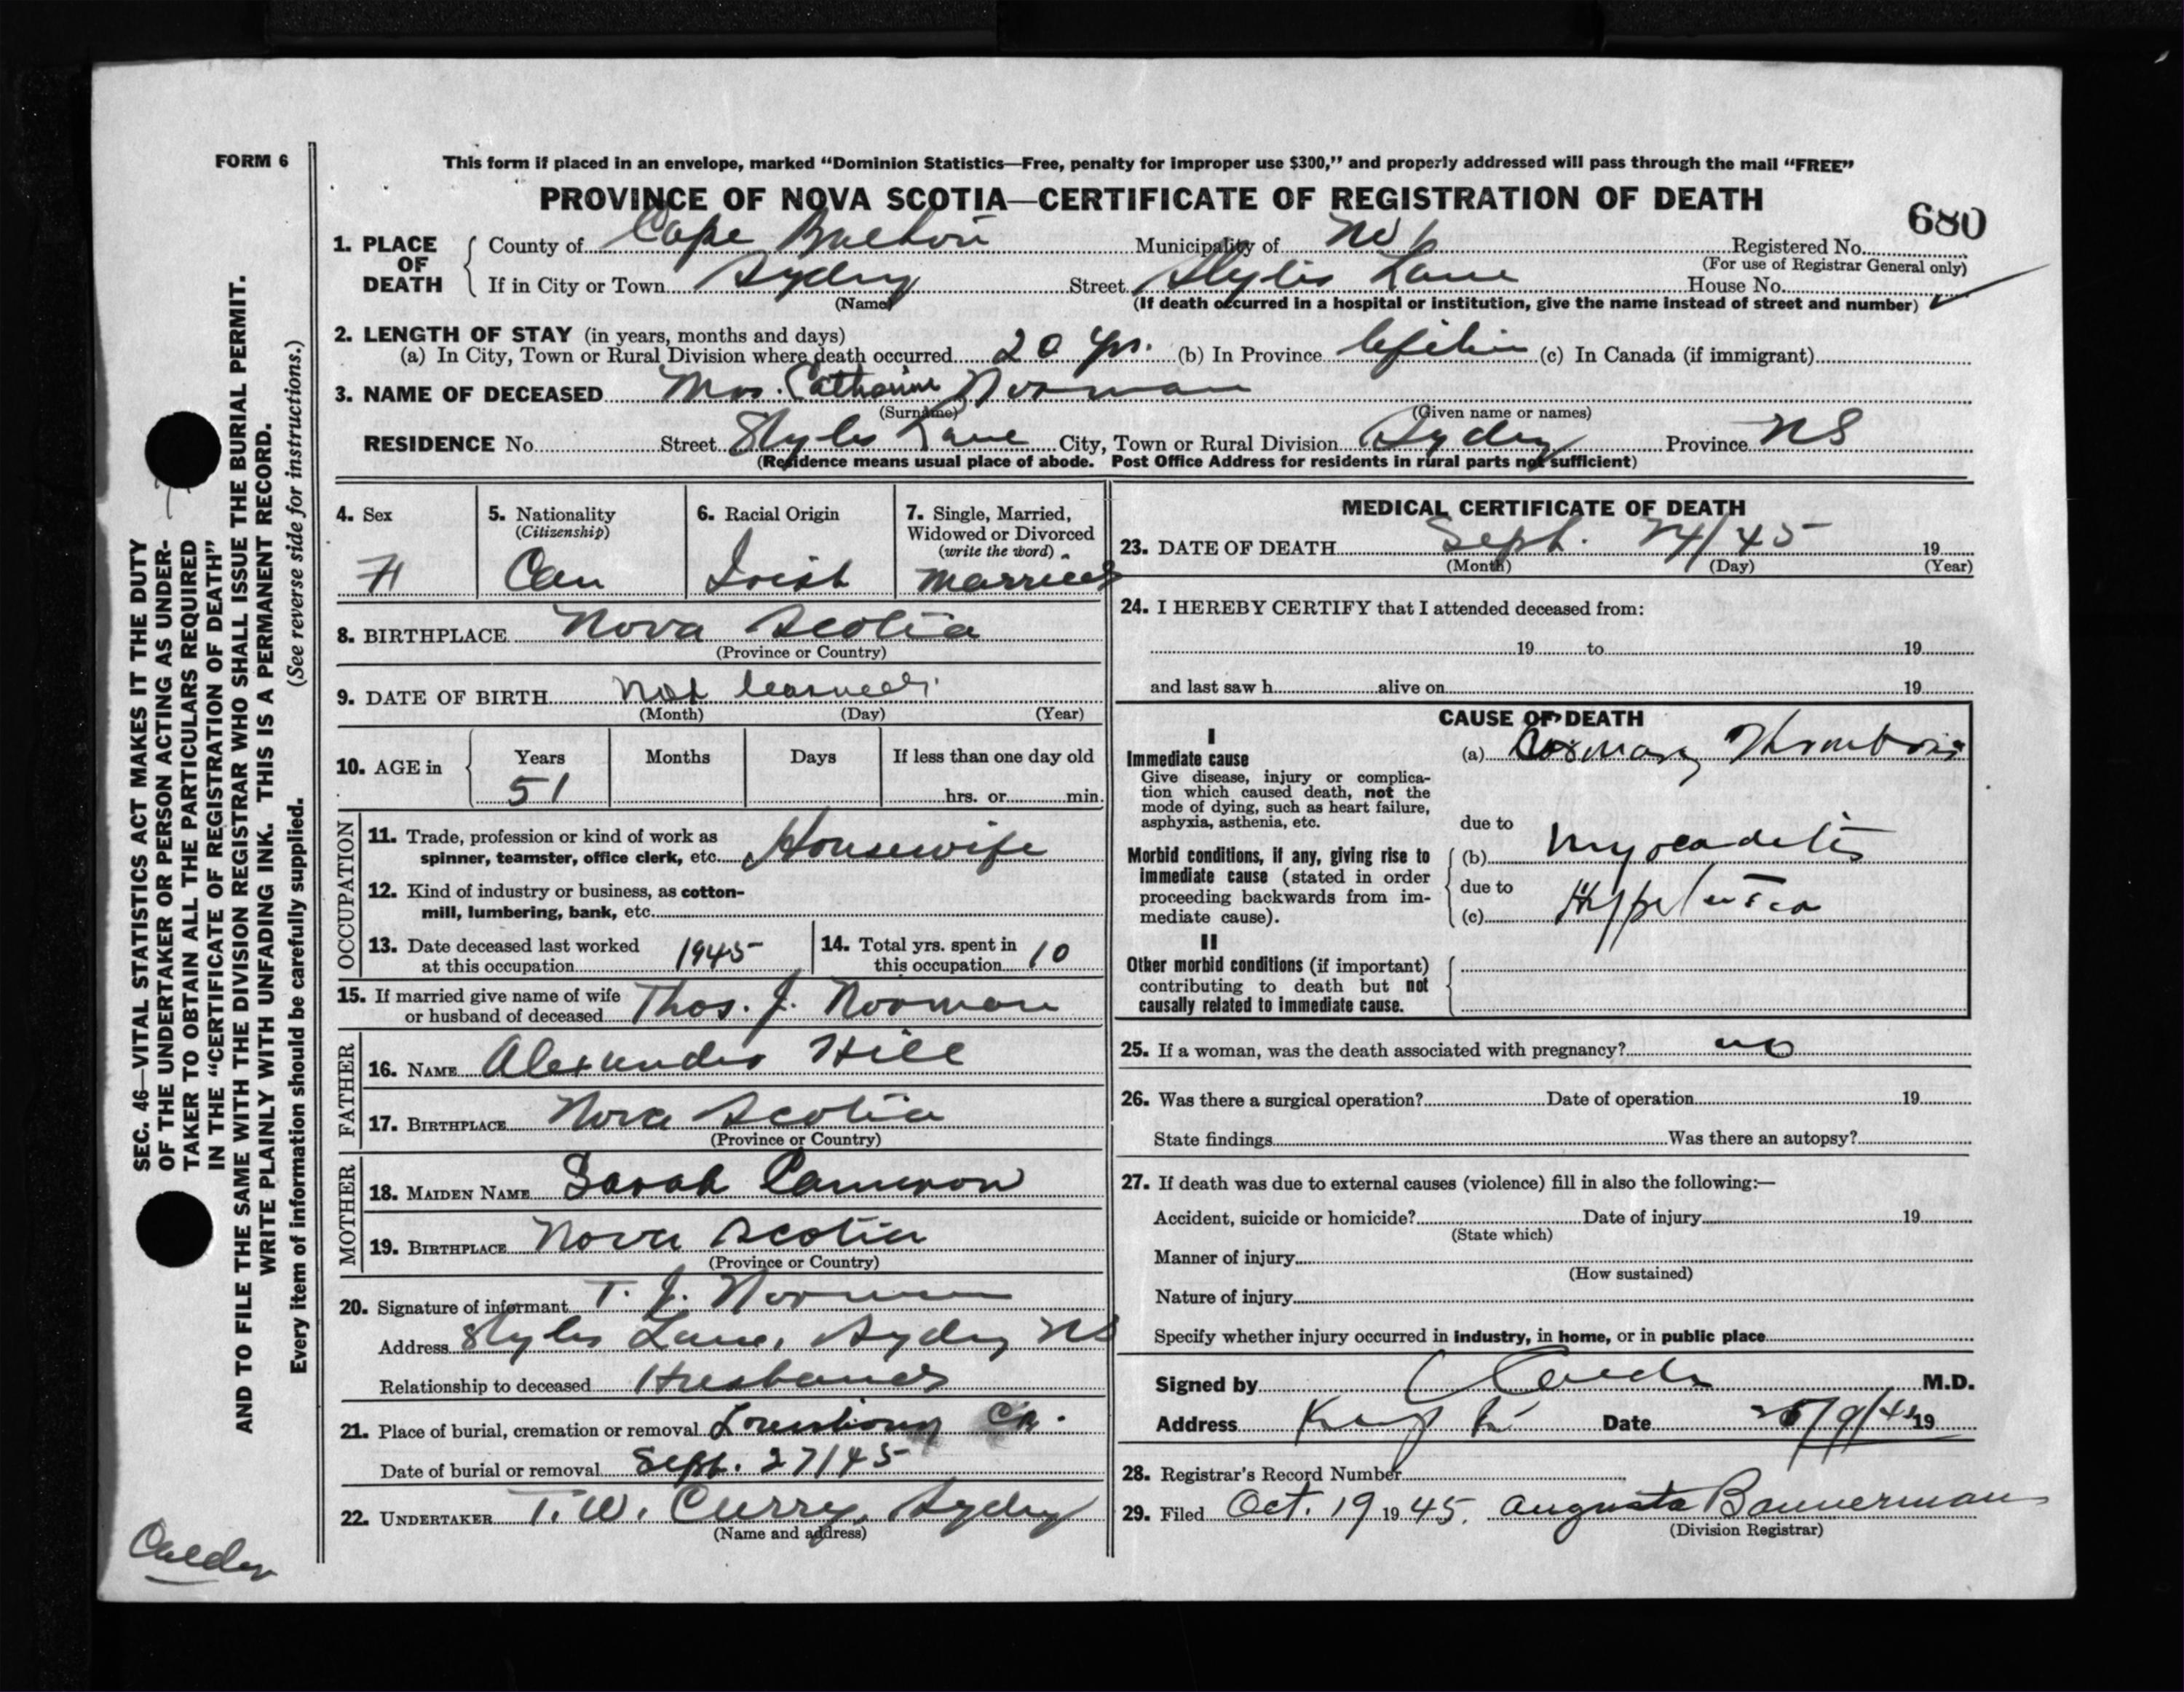 FORM 6
This form if placed in an envelope, marked “Dominion Statistics—Free, penalty for improper use $300,” and properly addressed will pass through the mail “FREE”
PROVINCE OF NOVA SCOTIA—CERTIFICATE OF REGISTRATION OF DEATH
680
1. PLACE OF DEATH
County of Cape Breton Municipality of No 6 Registered No.
(For use of Registrar General only)
If in City or Town Sydney Street Styles Lane House No.
(Name)
(If death occurred in a hospital or institution, give the name instead of street and number)
2. LENGTH OF STAY (in years, months and days)
(a) In City, Town or Rural Division where death occurred 20 yrs. (b) In Province Lifetime (c) In Canada (if immigrant)
3. NAME OF DECEASED Mrs. Catharine Norman
(Surname) (Given name or names)
RESIDENCE No. Street Styles Lane City, Town or Rural Division Sydney Province NS
(Residence means usual place of abode. Post Office Address for residents in rural parts not sufficient)
4. Sex
F
5. Nationality
(Citizenship)
Can
6. Racial Origin
Irish
7. Single, Married,
Widowed or Divorced
(write the word)
Married
8. BIRTHPLACE Nova Scotia
(Province or Country)
9. DATE OF BIRTH Not learned
(Month) (Day) (Year)
10. AGE in
Years Months Days If less than one day old
51 hrs. or min.
OCCUPATION
11. Trade, profession or kind of work as
spinner, teamster, office clerk, etc. Housewife
12. Kind of industry or business, as cotton-
mill, lumbering, bank, etc.
13. Date deceased last worked
at this occupation 1945
14. Total yrs. spent in
this occupation 10
15. If married give name of wife
or husband of deceased Thos. J. Norman
FATHER
16. NAME Alexander Hill
17. BIRTHPLACE Nova Scotia
(Province or Country)
MOTHER
18. MAIDEN NAME Sarah Cameron
19. BIRTHPLACE Nova Scotia
(Province or Country)
20. Signature of informant T. J. Norman
Address Styles Lane, Sydney NS
Relationship to deceased Husband
21. Place of burial, cremation or removal Louisbourg CB.
Date of burial or removal Sept. 27/45
22. UNDERTAKER T. W. Curry, Sydney
(Name and address)
MEDICAL CERTIFICATE OF DEATH
23. DATE OF DEATH Sept. 24/45 19
(Month) (Day) (Year)
24. I HEREBY CERTIFY that I attended deceased from:
19 to 19
and last saw h alive on 19
CAUSE OF DEATH
I
Immediate cause
Give disease, injury or complica-
tion which caused death, not the
mode of dying, such as heart failure,
asphyxia, asthenia, etc.
(a) Coronary Thrombosis
due to
Morbid conditions, if any, giving rise to
immediate cause (stated in order
proceeding backwards from im-
mediate cause).
(b) Myocaditis
due to
(c)
II
Other morbid conditions (if important)
contributing to death but not
causally related to immediate cause.
25. If a woman, was the death associated with pregnancy? no
26. Was there a surgical operation? Date of operation 19
State findings Was there an autopsy?
27. If death was due to external causes (violence) fill in also the following:—
Accident, suicide or homicide? Date of injury 19
(State which)
Manner of injury
(How sustained)
Nature of injury
Specify whether injury occurred in industry, in home, or in public place
Signed by M.D.
Address Date 19
28. Registrar's Record Number
29. Filed Oct. 19 19 45. Augusta Bannerman
(Division Registrar)
SEC. 46—VITAL STATISTICS ACT MAKES IT THE DUTY
OF THE UNDERTAKER OR PERSON ACTING AS UNDER-
TAKER TO OBTAIN ALL THE PARTICULARS REQUIRED
IN THE “CERTIFICATE OF REGISTRATION OF DEATH”
AND TO FILE THE SAME WITH THE DIVISION REGISTRAR WHO SHALL ISSUE THE BURIAL PERMIT.
WRITE PLAINLY WITH UNFADING INK. THIS IS A PERMANENT RECORD.
Every item of information should be carefully supplied. (See reverse side for instructions.)
Calder